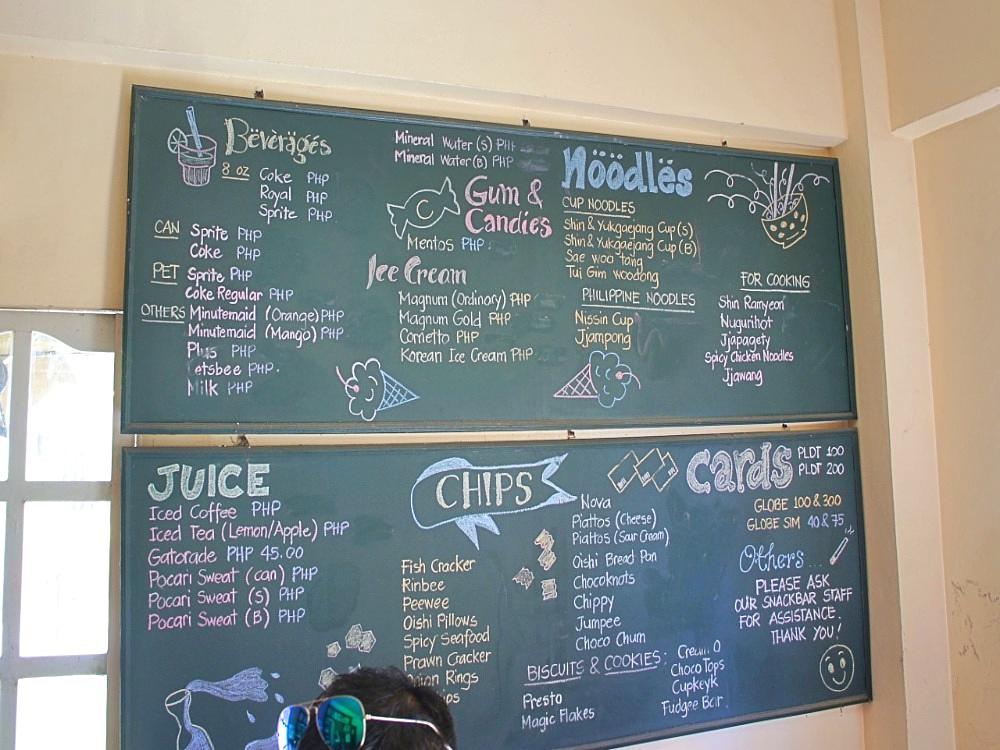 Bëvëràgés
8 oz Coke PHP
Royal PHP
Sprite PHP
CAN Sprite PHP
Coke PHP
PET Sprite PHP
Coke Regular PHP
OTHERS Minutemaid (Orange) PHP
Minutemaid (Mango) PHP
PHP
PHP
Milk PHP
Mineral Water (S) PHP
Mineral Water (B) PHP
C
Gum &
Candies
Mentos PHP
Ice Cream
Magnum (Ordinary) PHP
Magnum Gold PHP
Cornetto PHP
Korean Ice Cream PHP
Nöödlës
CUP NOODLES
Shin & Yukgaejang Cup (S)
Shin & Yukgaejang Cup (B)
Sae woo tang
Tui Gim woodong
PHILIPPINE NOODLES
Nissin Cup
Jjampong
FOR COOKING
Shin Ramyeon
Nugurihot
Jjapagety
Spicy Chicken Noodles
Jjawang
JUICE
Iced Coffee PHP
Iced Tea (Lemon/Apple) PHP
Gatorade PHP 45.00
Pocari Sweat (can) PHP
Pocari Sweat (S) PHP
Pocari Sweat (B) PHP
CHIPS
Fish Cracker
Rinbee
Peewee
Oishi Pillows
Spicy Seafood
Prawn Cracker
Onion Rings
Nova
Piattos (Cheese)
Piattos (Sour Cream)
Oishi Bread Pan
Chocoknots
Chippy
Jumpee
Choco Chum
BISCUITS & COOKIES:
Presto
Magic Flakes
Cream O
Choco Tops
Cupkeyk
Fudgee Bar
cards
PLDT 100
PLDT 200
GLOBE 100 & 300
GLOBE SIM 40 & 75
Others...
PLEASE ASK
OUR SNACKBAR STAFF
FOR ASSISTANCE.
THANK YOU!